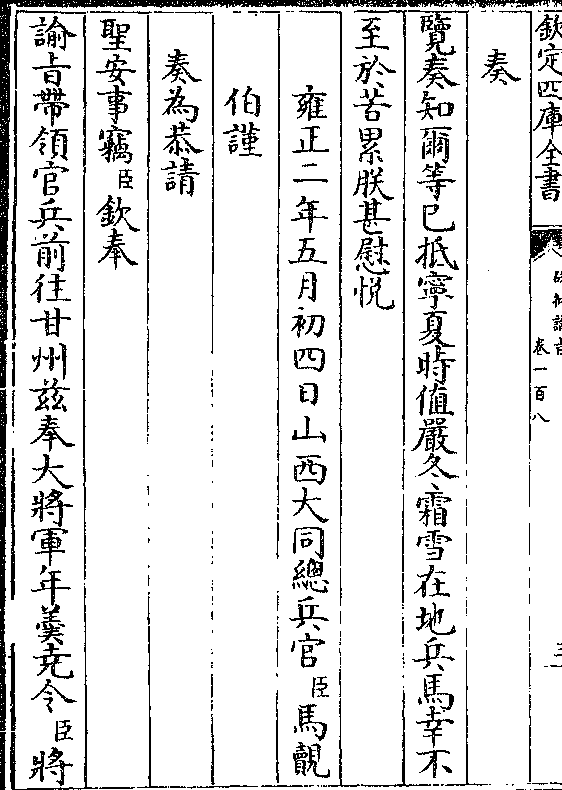 欽定四庫全書
硃批諭旨
卷一百八
三
奏
覽奏知爾等已抵寧夏時值嚴冬霜雪在地兵馬幸不
至於苦累朕甚慰悅
雍正二年五月初四日山西大同總兵官臣馬覿
伯謹
奏為恭請
聖安事竊臣欽奉
諭旨帶領官兵前往甘州兹奉大將軍年羹尭令臣將